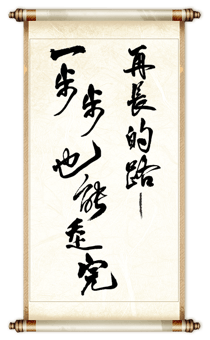 再長的路
一步步也能走完